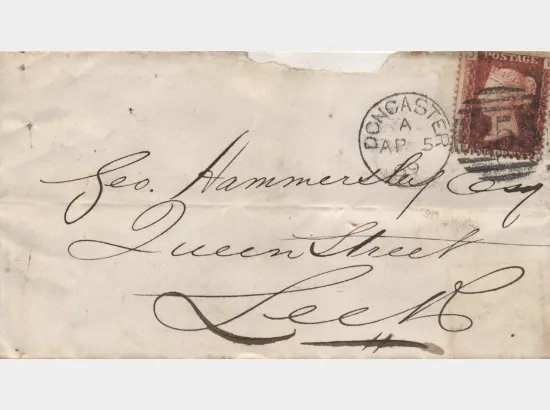 POSTAGE
DONCASTER
A
AP 5
Geo. Hammersley Esq
Queen Street
Leek